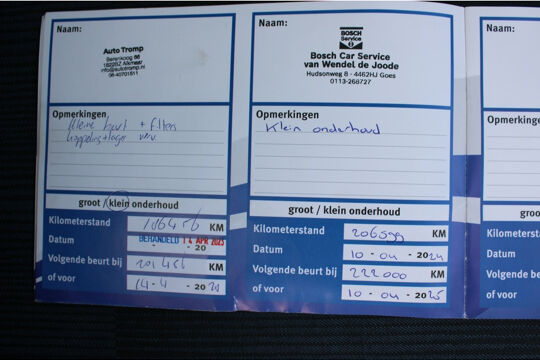 Naam:
Auto Tromp
Berenkoog
info@autotromp.nl
Opmerkingen
kleine beurt + filters
koppeling + lager
groot / klein onderhoud
Kilometerstand 186456 KM
Datum BEHANDELD 14 APR 2023 - - 20
Volgende beurt bij 201456 KM
of voor 14-4 - 20
Naam:
BOSCH
Service
Bosch Car Service
van Wendel de Joode
Hudsonweg 8 - 4462HJ Goes
0113-268727
Opmerkingen
Klein onderhoud
groot / klein onderhoud
Kilometerstand KM
Datum 10 - 04 - 2024
Volgende beurt bij 222000 KM
of voor 10 - 04 - 2025
Naam:
Opmerkinge
groot
Kilometersta
Datum
Volgende be
of voor